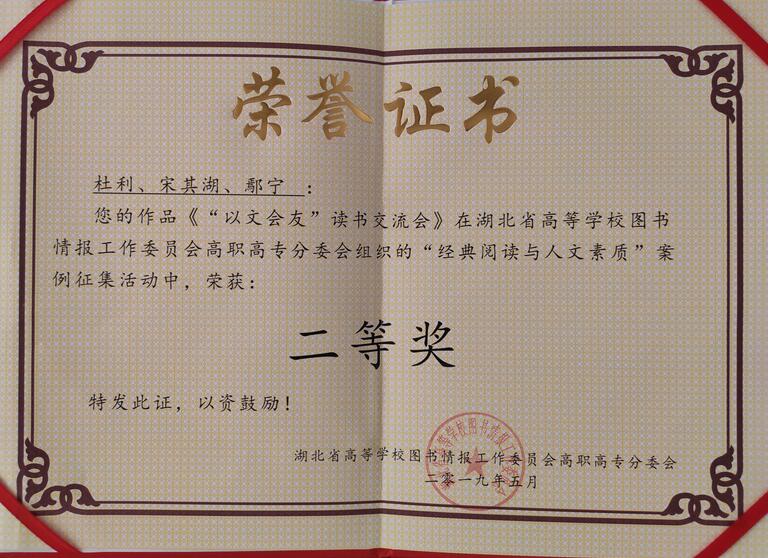 荣誉证书
杜利、宋其湖、鄢宁：
您的作品《“以文会友”读书交流会》在湖北省高等学校图书
情报工作委员会高职高专分委会组织的“经典阅读与人文素质”案
例征集活动中，荣获：
二等奖
特发此证，以资鼓励！
湖北省高等学校图书情报工作委员会高职高专分委会
二零一九年五月